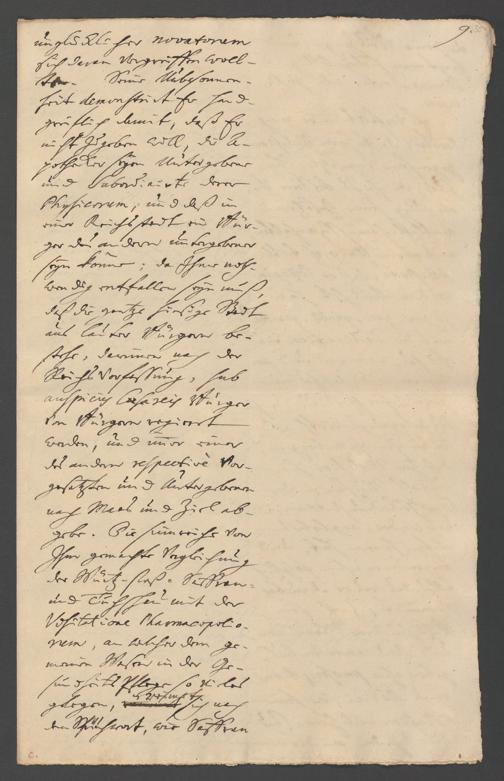 9.
unglücklicher novatorum
sich daran vergreiffen woll-
ten. Seine Unbesonnen-
heit demonstrirt Er hand-
greiflich damit, daß Er
nicht zugeben will, die A-
potheker seyen Untergebene
und Subordinirte derer
Physicorum, und daß in
einer Reichsstadt ein Bür-
ger des anderen untergebener
seyn könne: da Ihme noth-
wendig entfallen seyn muß,
daß die gantze hiesige Stadt
aus lauter Bürgern be-
stehe, darinnen nach der
Reichs Verfassung, sub
auspiciis Caesareis Bürger
von Bürgern regieret
werden, und immer einer
des andern respective Vor-
gesetzten und Untergebenen
nach Maas und Ziel ab-
gebe. Die sinnreiche von
Ihm gemachte Vergleichung
der Saffran-
und Tuchschau mit der
Visitatione Pharmacopolio-
rum, an welcher dem ge-
meinen Wesen in der Ge-
sundheits Pflege so vieles
gelegen, sich nach
dem Sprichwort, wie Saffran